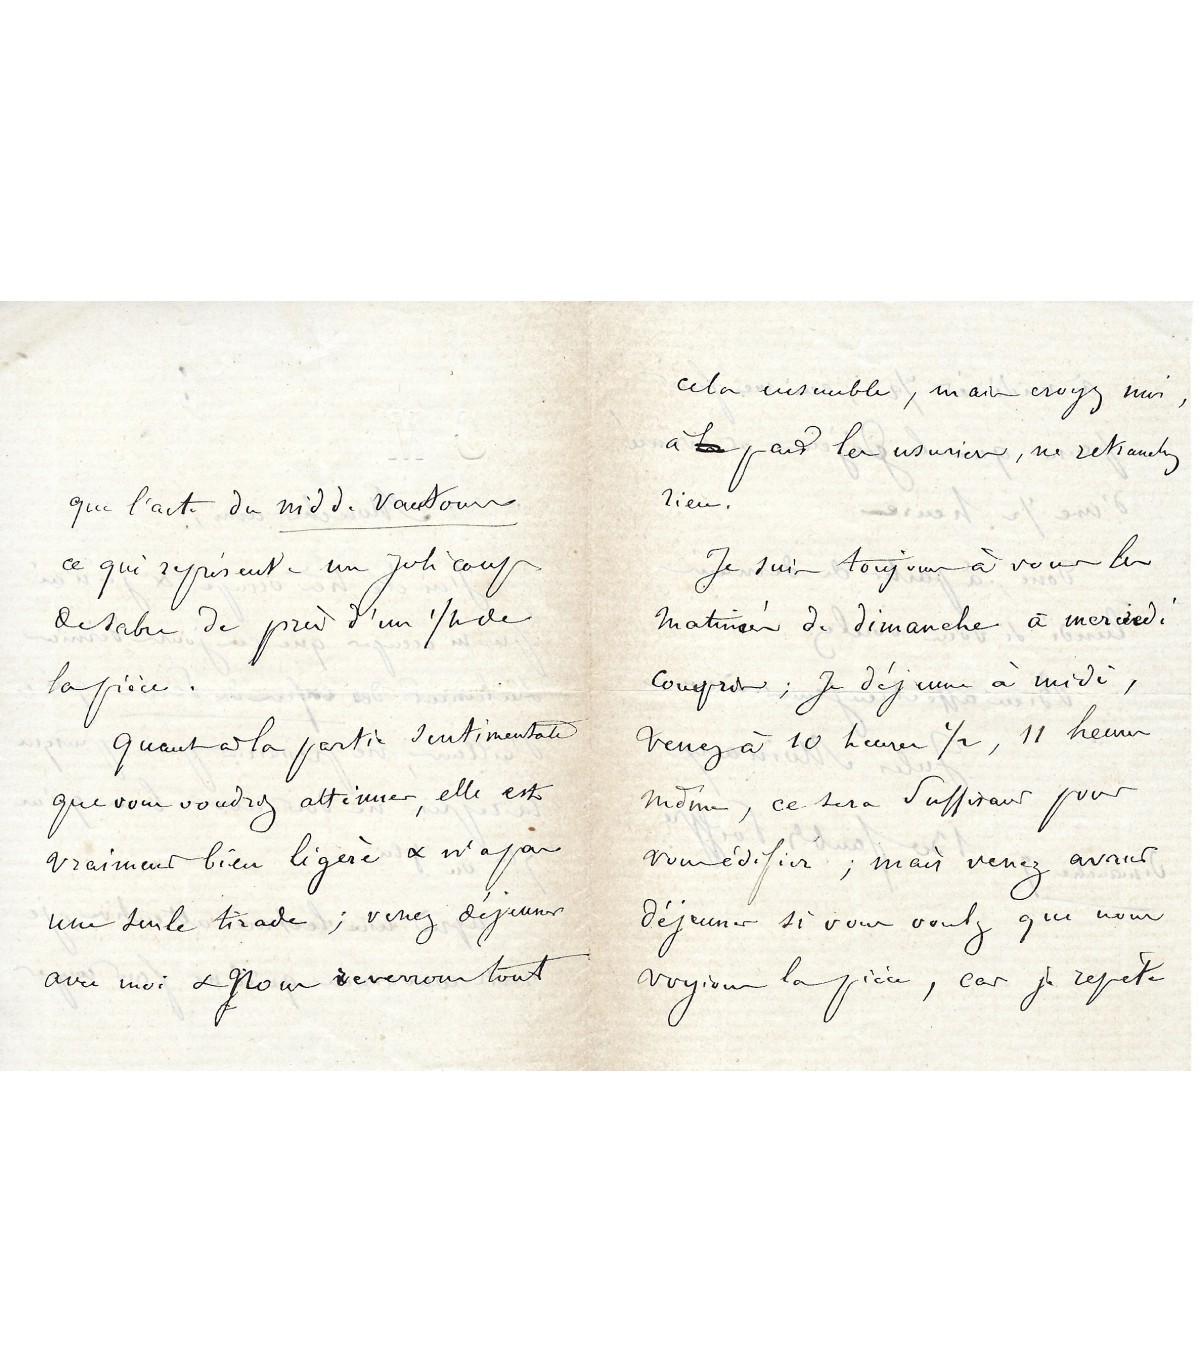 que l'acte du nid de Vautours
ce qui représente un joli coup
de sabre de près d'un 1/4 de
la pièce.
Quant à la partie sentimentale
que vous voudrez atténuer, elle est
vraiment bien ligère & n'a pas
une seule tirade ; venez déjeuner
avec moi & nous reverrons tout
cela ensemble, mais croyez moi,
à part les usuriers, ne retranchez
rien.
Je suis toujours à vous les
matinées de dimanche à mercredi
compris ; Je déjeune à midi,
Venez à 10 heures 1/2, 11 heures
même, ce sera suffisant pour
vous édifier ; mais venez avant
déjeuner si vous voulez que nous
voyions la pièce, car je repète